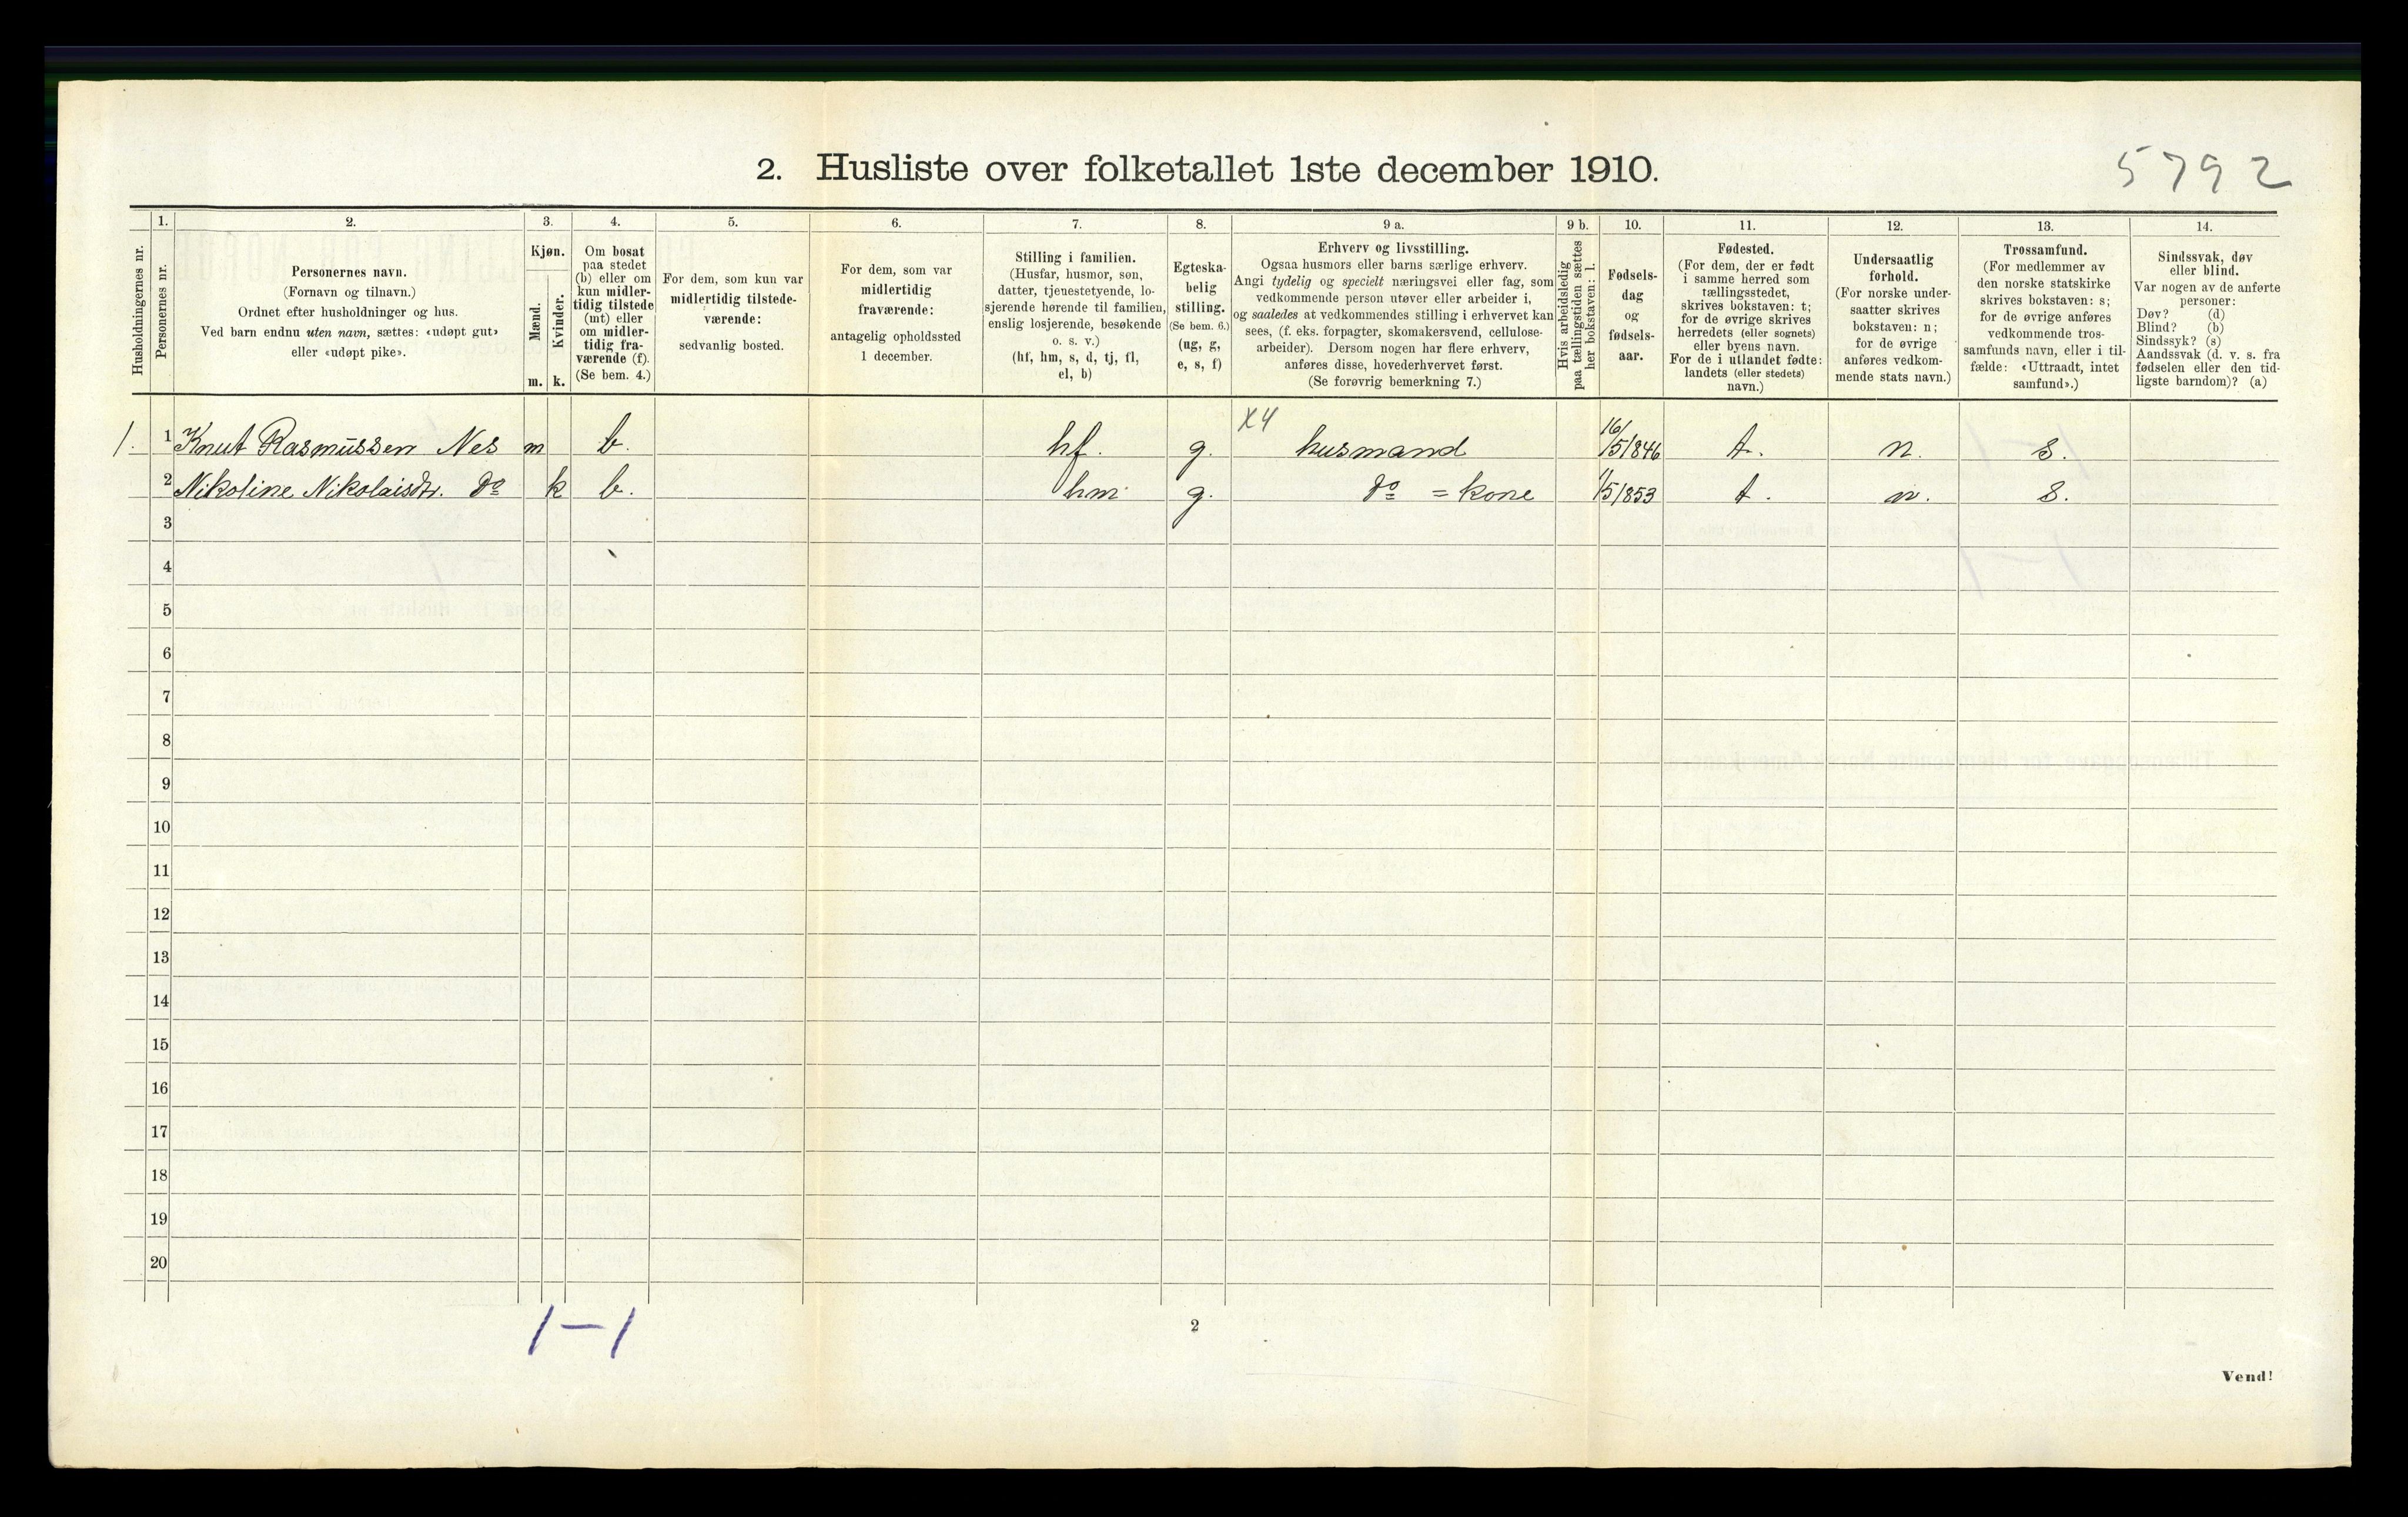 2. Husliste over folketallet 1ste december 1910.
5792
Husholdningernes nr.
1.
Personernes nr.
2.
Personernes navn.
(Fornavn og tilnavn.)
Ordnet efter husholdninger og hus.
Ved barn endnu uten navn, sættes: «udøpt gut»
eller «udøpt pike».
3.
Kjøn.
Mænd.
Kvinder.
m. k.
4.
Om bosat
paa stedet
(b) eller om
kun midler-
tidig tilstede
(mt) eller
om midler-
tidig fra-
værende (f).
(Se bem. 4.)
5.
For dem, som kun var
midlertidig tilstede-
værende:
sedvanlig bosted.
6.
For dem, som var
midlertidig
fraværende:
antagelig opholdssted
1 december.
7.
Stilling i familien.
(Husfar, husmor, søn,
datter, tjenestetyende, lo-
sjerende hørende til familien,
enslig losjerende, besøkende
o. s. v.)
(hf, hm, s, d, tj, fl,
el, b)
8.
Egteska-
belig
stilling.
(Se bem. 6.)
(ug, g,
e, s, f)
9 a.
Erhverv og livsstilling.
Ogsaa husmors eller barns særlige erhverv.
Angi tydelig og specielt næringsvei eller fag, som
vedkommende person utøver eller arbeider i,
og saaledes at vedkommendes stilling i erhvervet kan
sees, (f. eks. forpagter, skomakersvend, cellulose-
arbeider). Dersom nogen har flere erhverv,
anføres disse, hovederhvervet først.
(Se forøvrig bemerkning 7.)
9 b.
Hvis arbeidsledig
paa tællingstiden sættes
her bokstaven: l.
10.
Fødsels-
dag
og
fødsels-
aar.
11.
Fødested.
(For dem, der er født
i samme herred som
tællingsstedet,
skrives bokstaven: t;
for de øvrige skrives
herredets (eller sognets)
eller byens navn.
For de i utlandet fødte:
landets (eller stedets)
navn.)
12.
Undersaatlig
forhold.
(For norske under-
saatter skrives
bokstaven: n;
for de øvrige
anføres vedkom-
mende stats navn.)
13.
Trossamfund.
(For medlemmer av
den norske statskirke
skrives bokstaven: s;
for de øvrige anføres
vedkommende tros-
samfunds navn, eller i til-
fælde: «Uttraadt, intet
samfund».)
14.
Sindssvak, døv
eller blind.
Var nogen av de anførte
personer:
Døv? (d)
Blind? (b)
Sindssyk? (s)
Aandssvak (d. v. s. fra
fødselen eller den tid-
ligste barndom)? (a)
X4
1. 1 Knut Rasmussen Nes m b. hf. g. husmand 16/5 1846 t. n. s.
2 Nikoline Nikolaisdtr. do k b. hm g. do = kone 1/5 1853 t. n. s.
3
4
5
6
7
8
9
10
11
12
13
14
15
16
17
18
19
20
1 – 1
2
Vend!